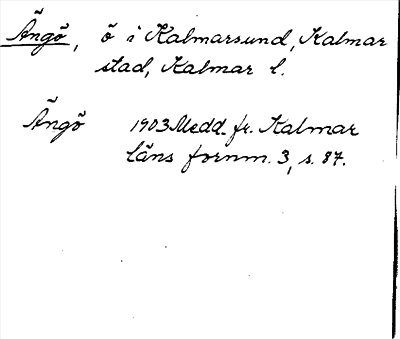 Ängö, ö i Kalmarsund, Kalmar
stad, Kalmar l.
Ängö 1903 Medd. fr. Kalmar
läns fornm. 3, s. 87.